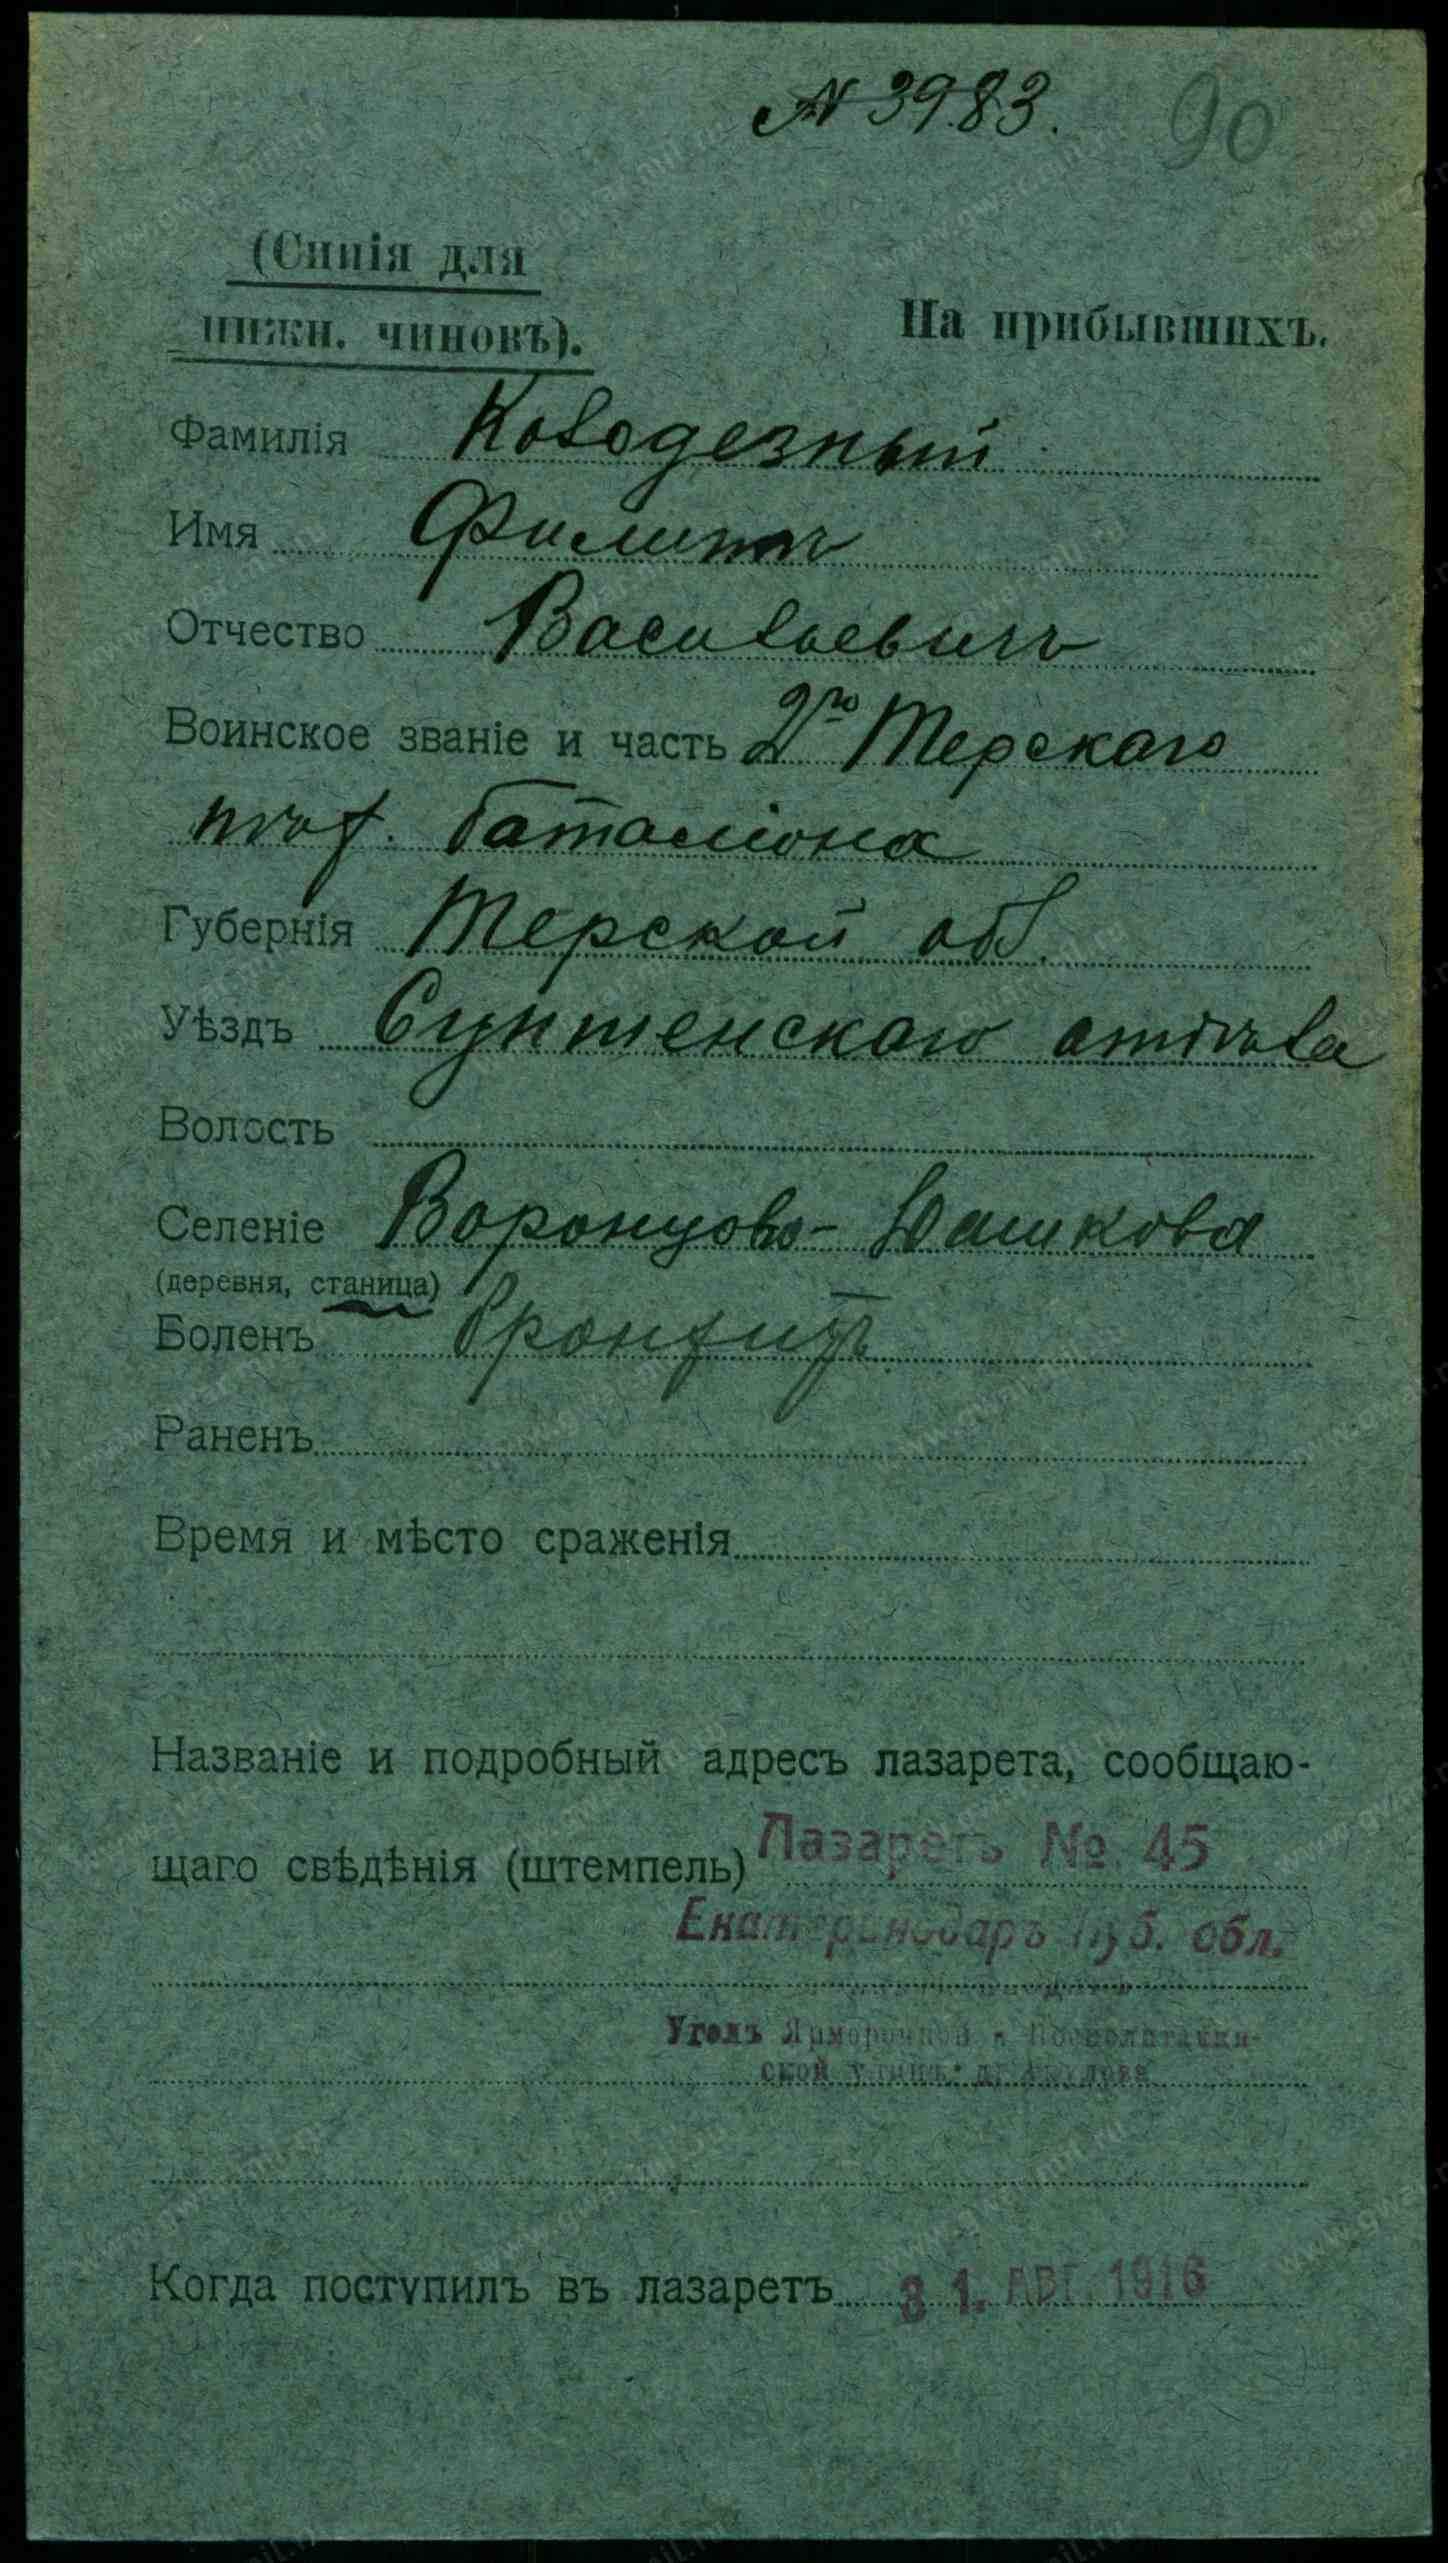 № 3983. 90
(Синія для
нижн. чиновъ).
На прибывшихъ.
Фамилія Колодезный
Имя Филиппъ
Отчество Васильевичъ
Воинское званіе и часть 2го Терскаго
плас. баталіона
Губернія Терской обл.
Уѣздъ Сунженскаго отдѣла
Волость
Селеніе Воронцово-Дашкова
(деревня, станица)
Боленъ бронхитъ
Раненъ
Время и мѣсто сраженія
Названіе и подробный адресъ лазарета, сообщаю-
щаго свѣдѣнія (штемпель) Лазаретъ № 45
Екатеринодаръ Куб. обл.
Уголъ Ярмарочной и
ской
Когда поступилъ въ лазаретъ 31. АВГ. 1916
www.gwar.mil.ru